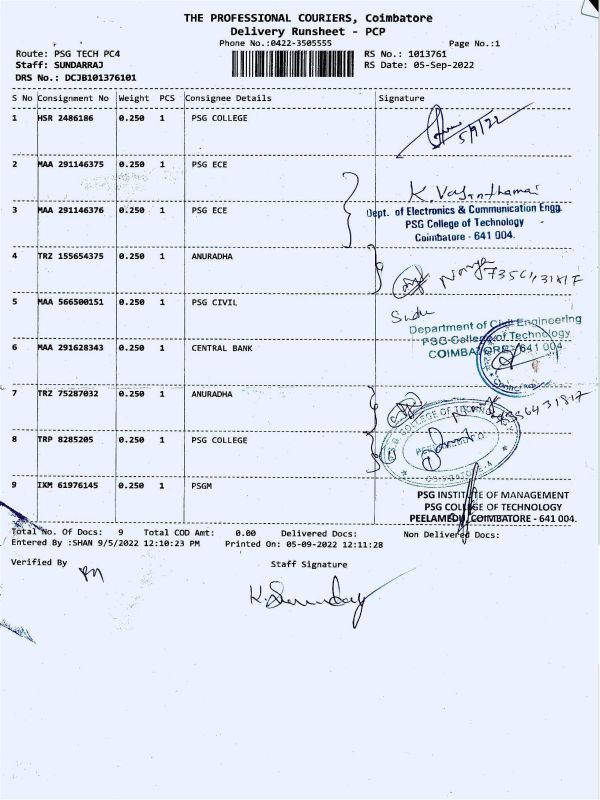 THE PROFESSIONAL COURIERS, Coimbatore
Delivery Runsheet - PCP
Phone No.:0422-3505555 Page No.:1
Route: PSG TECH PC4 RS No.: 1013761
Staff: SUNDARRAJ RS Date: 05-Sep-2022
DRS No.: DCJB101376101
S No Consignment No Weight PCS Consignee Details Signature
1 HSR 2486186 0.250 1 PSG COLLEGE
5/9/22
2 MAA 291146375 0.250 1 PSG ECE
K. Vasanthamai
3 MAA 291146376 0.250 1 PSG ECE
Dept. of Electronics & Communication Engg.
PSG College of Technology
Coimbatore - 641 004.
4 TRZ 155654375 0.250 1 ANURADHA
5 MAA 566500151 0.250 1 PSG CIVIL
Department of Civil Engineering
PSG College of Technology
COIMBATORE - 641 004
6 MAA 291628343 0.250 1 CENTRAL BANK
7 TRZ 75287032 0.250 1 ANURADHA
8 TRP 8285205 0.250 1 PSG COLLEGE
P.S.G. COLLEGE OF TECHNOLOGY
9 IXM 61976145 0.250 1 PSGM
PSG INSTITUTE OF MANAGEMENT
PSG COLLEGE OF TECHNOLOGY
PEELAMEDU, COIMBATORE - 641 004.
Total No. Of Docs: 9 Total COD Amt: 0.00 Delivered Docs: Non Delivered Docs:
Entered By :SHAN 9/5/2022 12:10:23 PM Printed On: 05-09-2022 12:11:28
Verified By Staff Signature